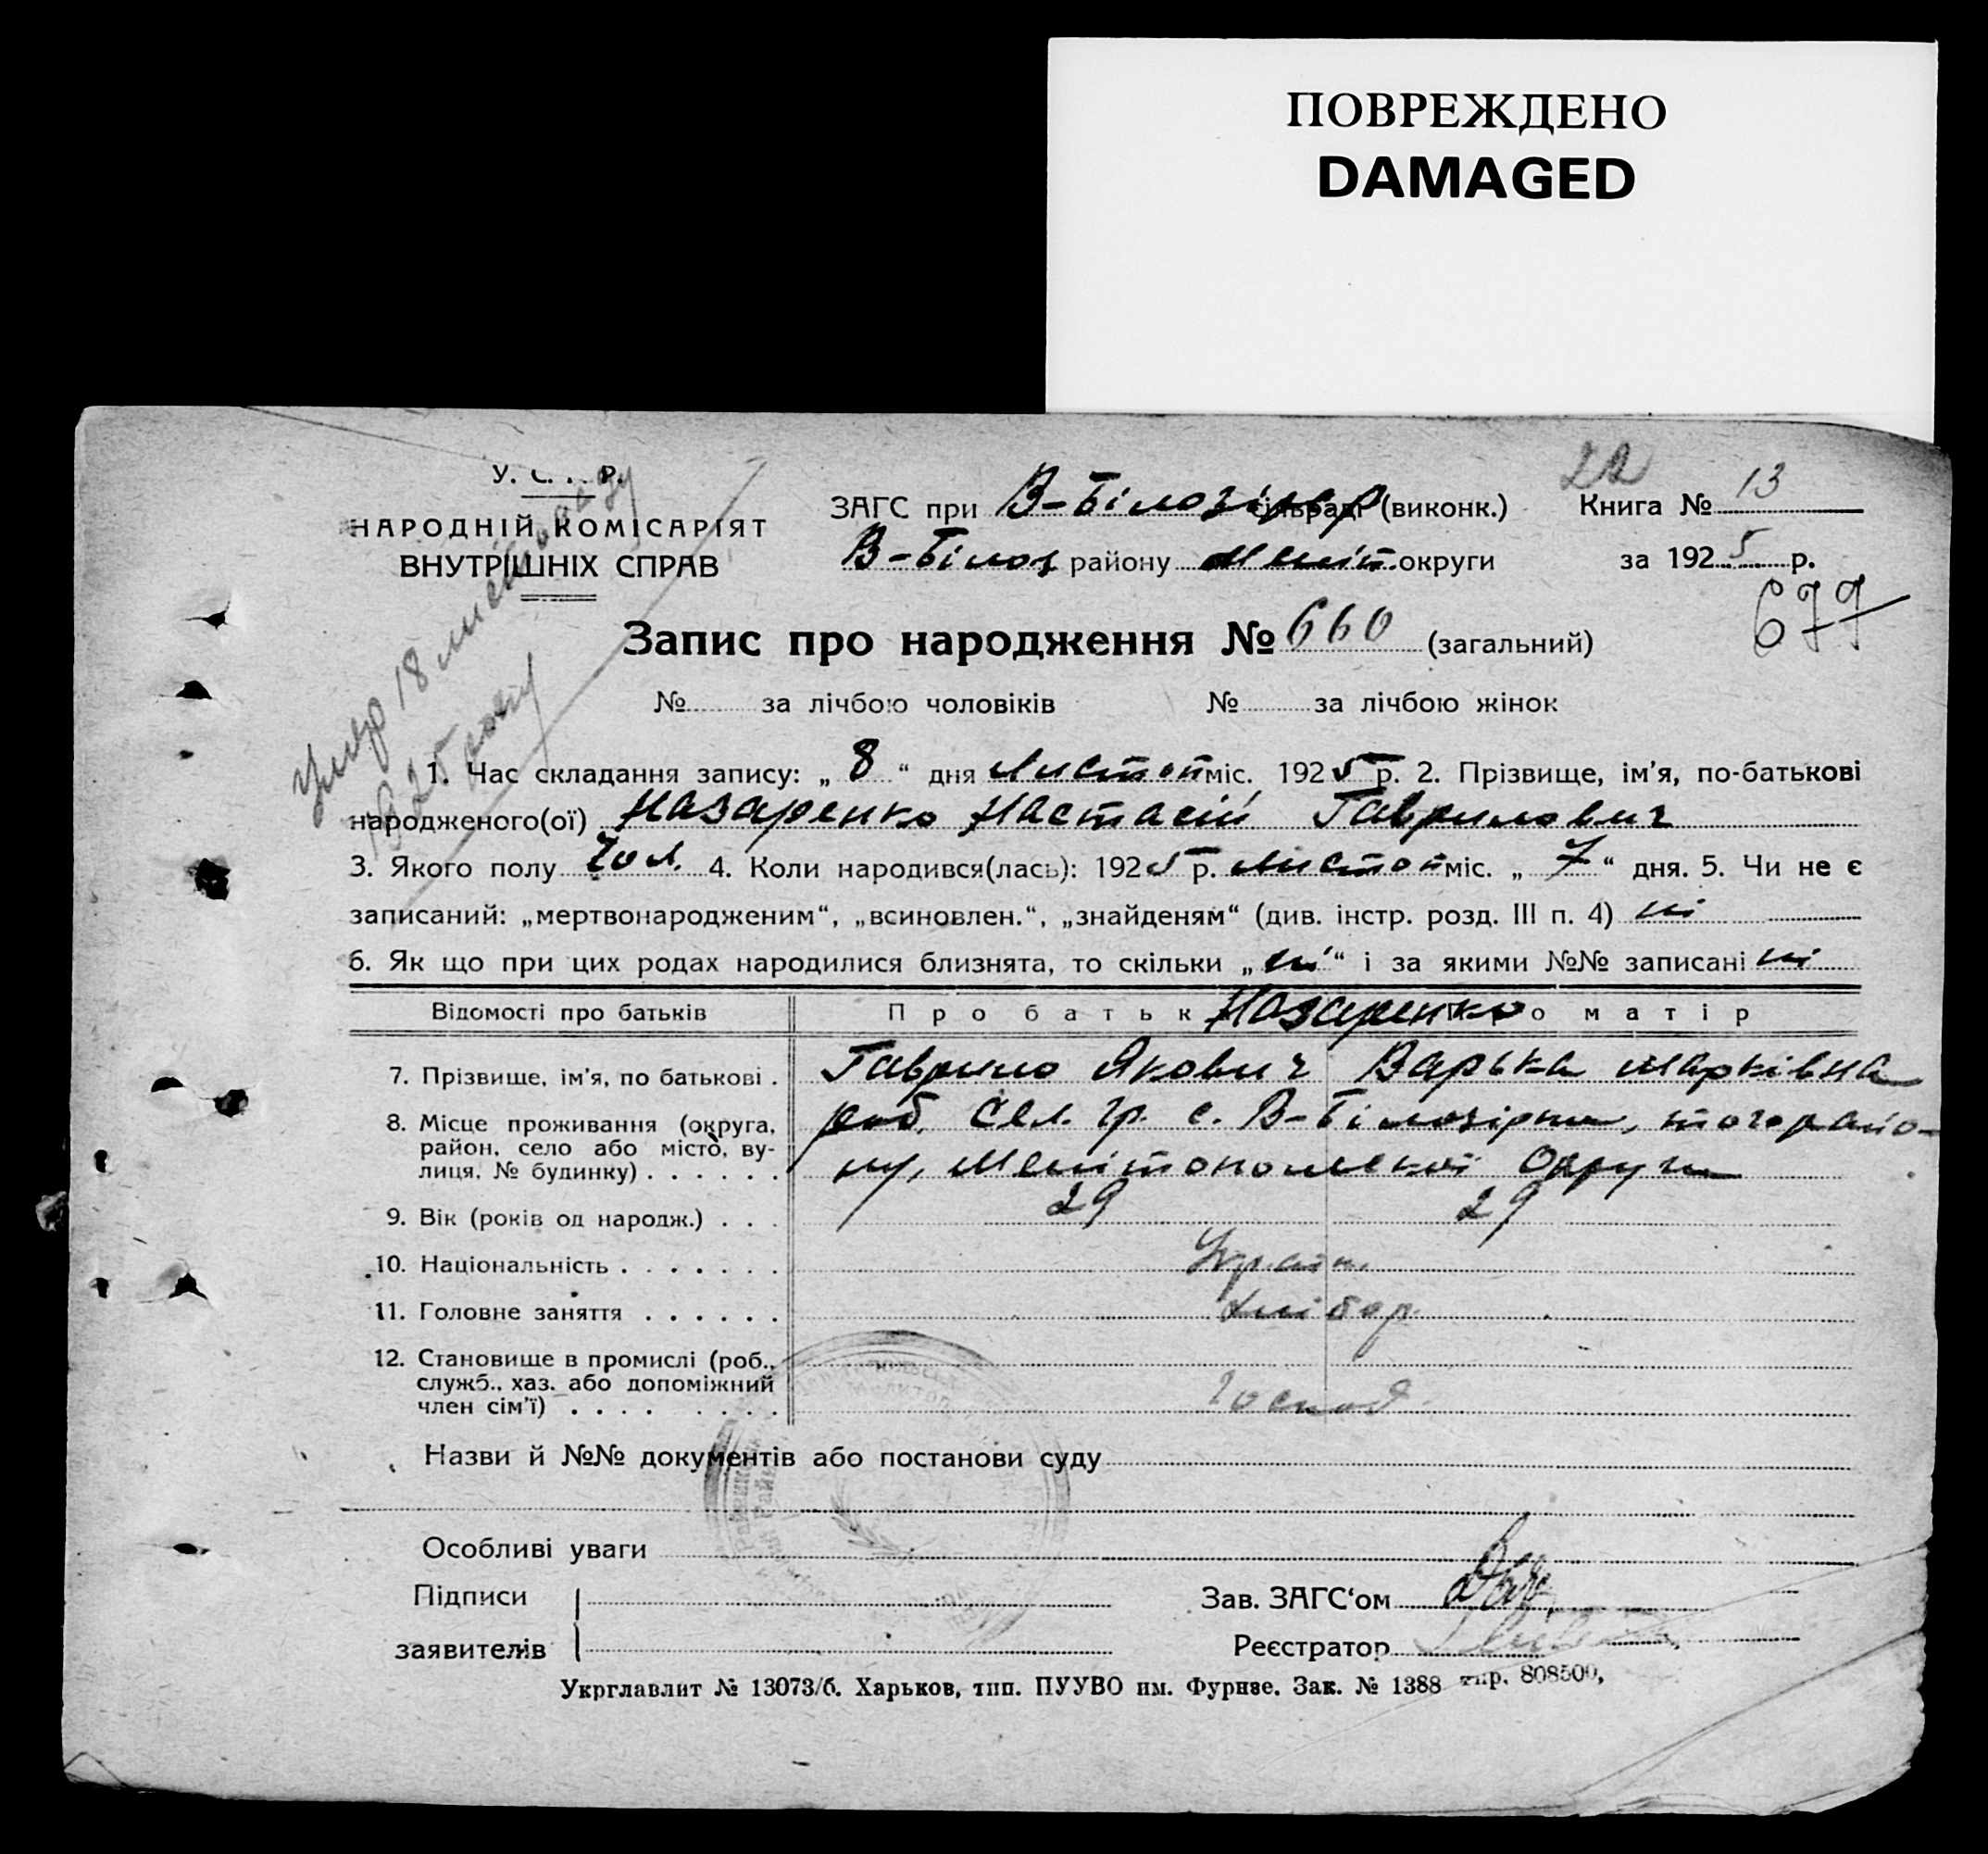 ПОВРЕЖДЕНО
DAMAGED
У. С. Р.
НАРОДНІЙ КОМІСАРІЯТ
ВНУТРІШНІХ СПРАВ
ЗАГС при В-Білозір сільраді (виконк.)
22
Книга № 13
В-Білоз району Меліт округи
за 1925 р.
679
Запис про народження № 660 (загальний)
№ за лічбою чоловіків № за лічбою жінок
Умер 18 листопаду
1925 року
1. Час складання запису: „ 8 “ дня Листоп міс. 1925 р. 2. Прізвище, ім’я, по-батькові
народженого(ої) Назаренко Настасій Гаврилович
3. Якого полу Чол. 4. Коли народився(лась): 1925 р. Листоп міс. „ 7 “ дня. 5. Чи не є
записаний: „мертвонародженим“, „всиновлен.“, „знайденям“ (див. інстр. розд. III п. 4) ні
6. Як що при цих родах народилися близнята, то скільки „ ні “ і за якими №№ записані ні
Відомості про батьків Про батьк Назаренко о матір
7. Прізвище, ім’я, по батькові . Гаврило Якович Варька Марківна
8. Місце проживання (округа, район, село або місто, ву-лиця, № будинку) . . . . . . гр. с. В-Білозірки, того райо-
ну, Мелітопольскої Округи
9. Вік (років од народж.) . . . 29 29
10. Національність . . . . . . . Україн.
11. Головне заняття . . . . . . Хлібор.
12. Становище в промислі (роб., служб., хаз. або допоміжний член сім’ї) . . . . . . . . Господ.
Назви й №№ документів або постанови суду
Особливі уваги
Підписи
заявителів
Зав. ЗАГС‘ом
Реєстратор
Укрглавлит № 13073/б. Харьков, тип. ПУУВО им. Фрунзе. Зак. № 1388 тир. 808500,